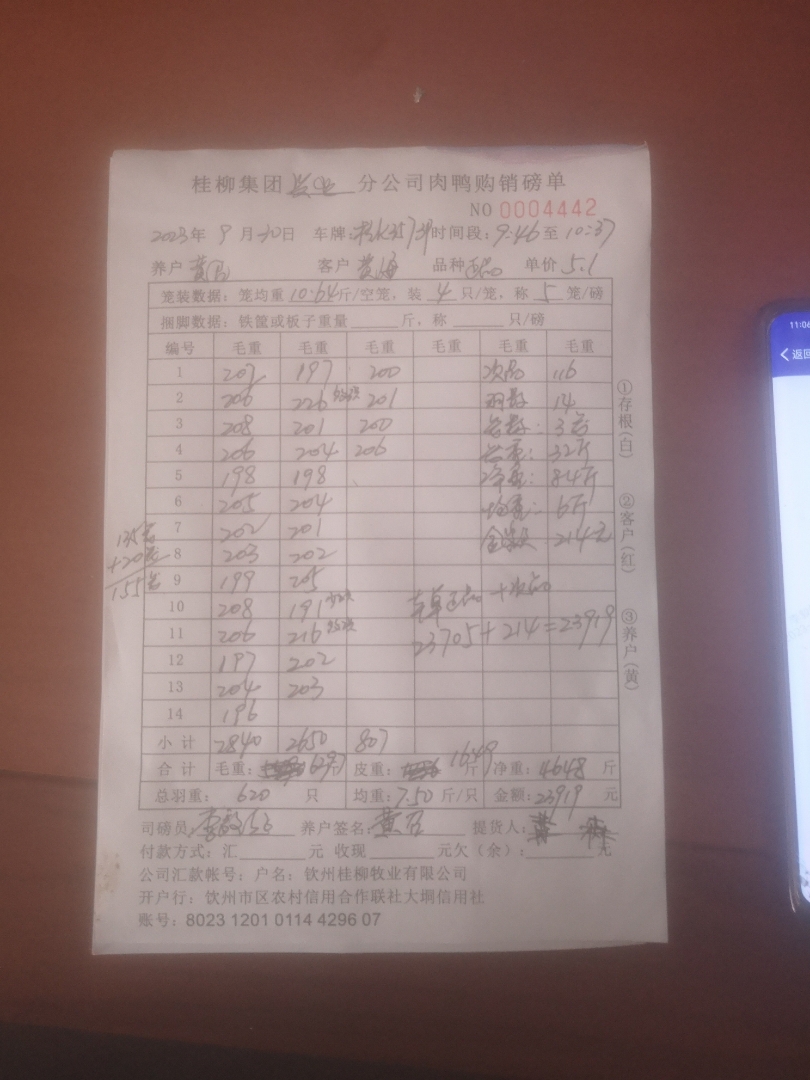 桂柳集团 分公司肉鸭购销磅单
NO 0004442
2023年 9月30日 车牌: 时间段:9:46至10:37
养户 黄 客户 黄海 品种 正品 单价 5.1
笼装数据:笼均重10.64斤/空笼,装 4 只/笼,称 5 笼/磅
捆脚数据:铁筐或板子重量 斤,称 只/磅
编号 毛重 毛重 毛重 毛重 毛重 毛重
1 202 197 200 次品 116
2 206 226 201 羽数 14
3 208 201 200 笼数: 3笼
4 206 204 206 32斤
5 198 198 净重: 84斤
6 205 204 均重: 6斤
7 202 201 金额 214元
8 203 202
9 199 205
10 208 191
11 206 216
12 197 202
13 204 203
14 196
135笼
+20笼
155笼
正品 + 次品
23705+214=23919
小计 2840 2650 807
合计 毛重: 6297斤 皮重: 1649 净重:4648 斤
总羽重: 620 只 均重:7.50斤/只 金额:23919 元
司磅员 养户签名:黄 提货人:
付款方式:汇 元 收现 元欠(余): 元
公司汇款帐号:户名:钦州桂柳牧业有限公司
开户行:钦州市区农村信用合作联社大垌信用社
账号:8023 1201 0114 4296 07
①存根(白)
②客户(红)
③养户(黄)
11:06
返回